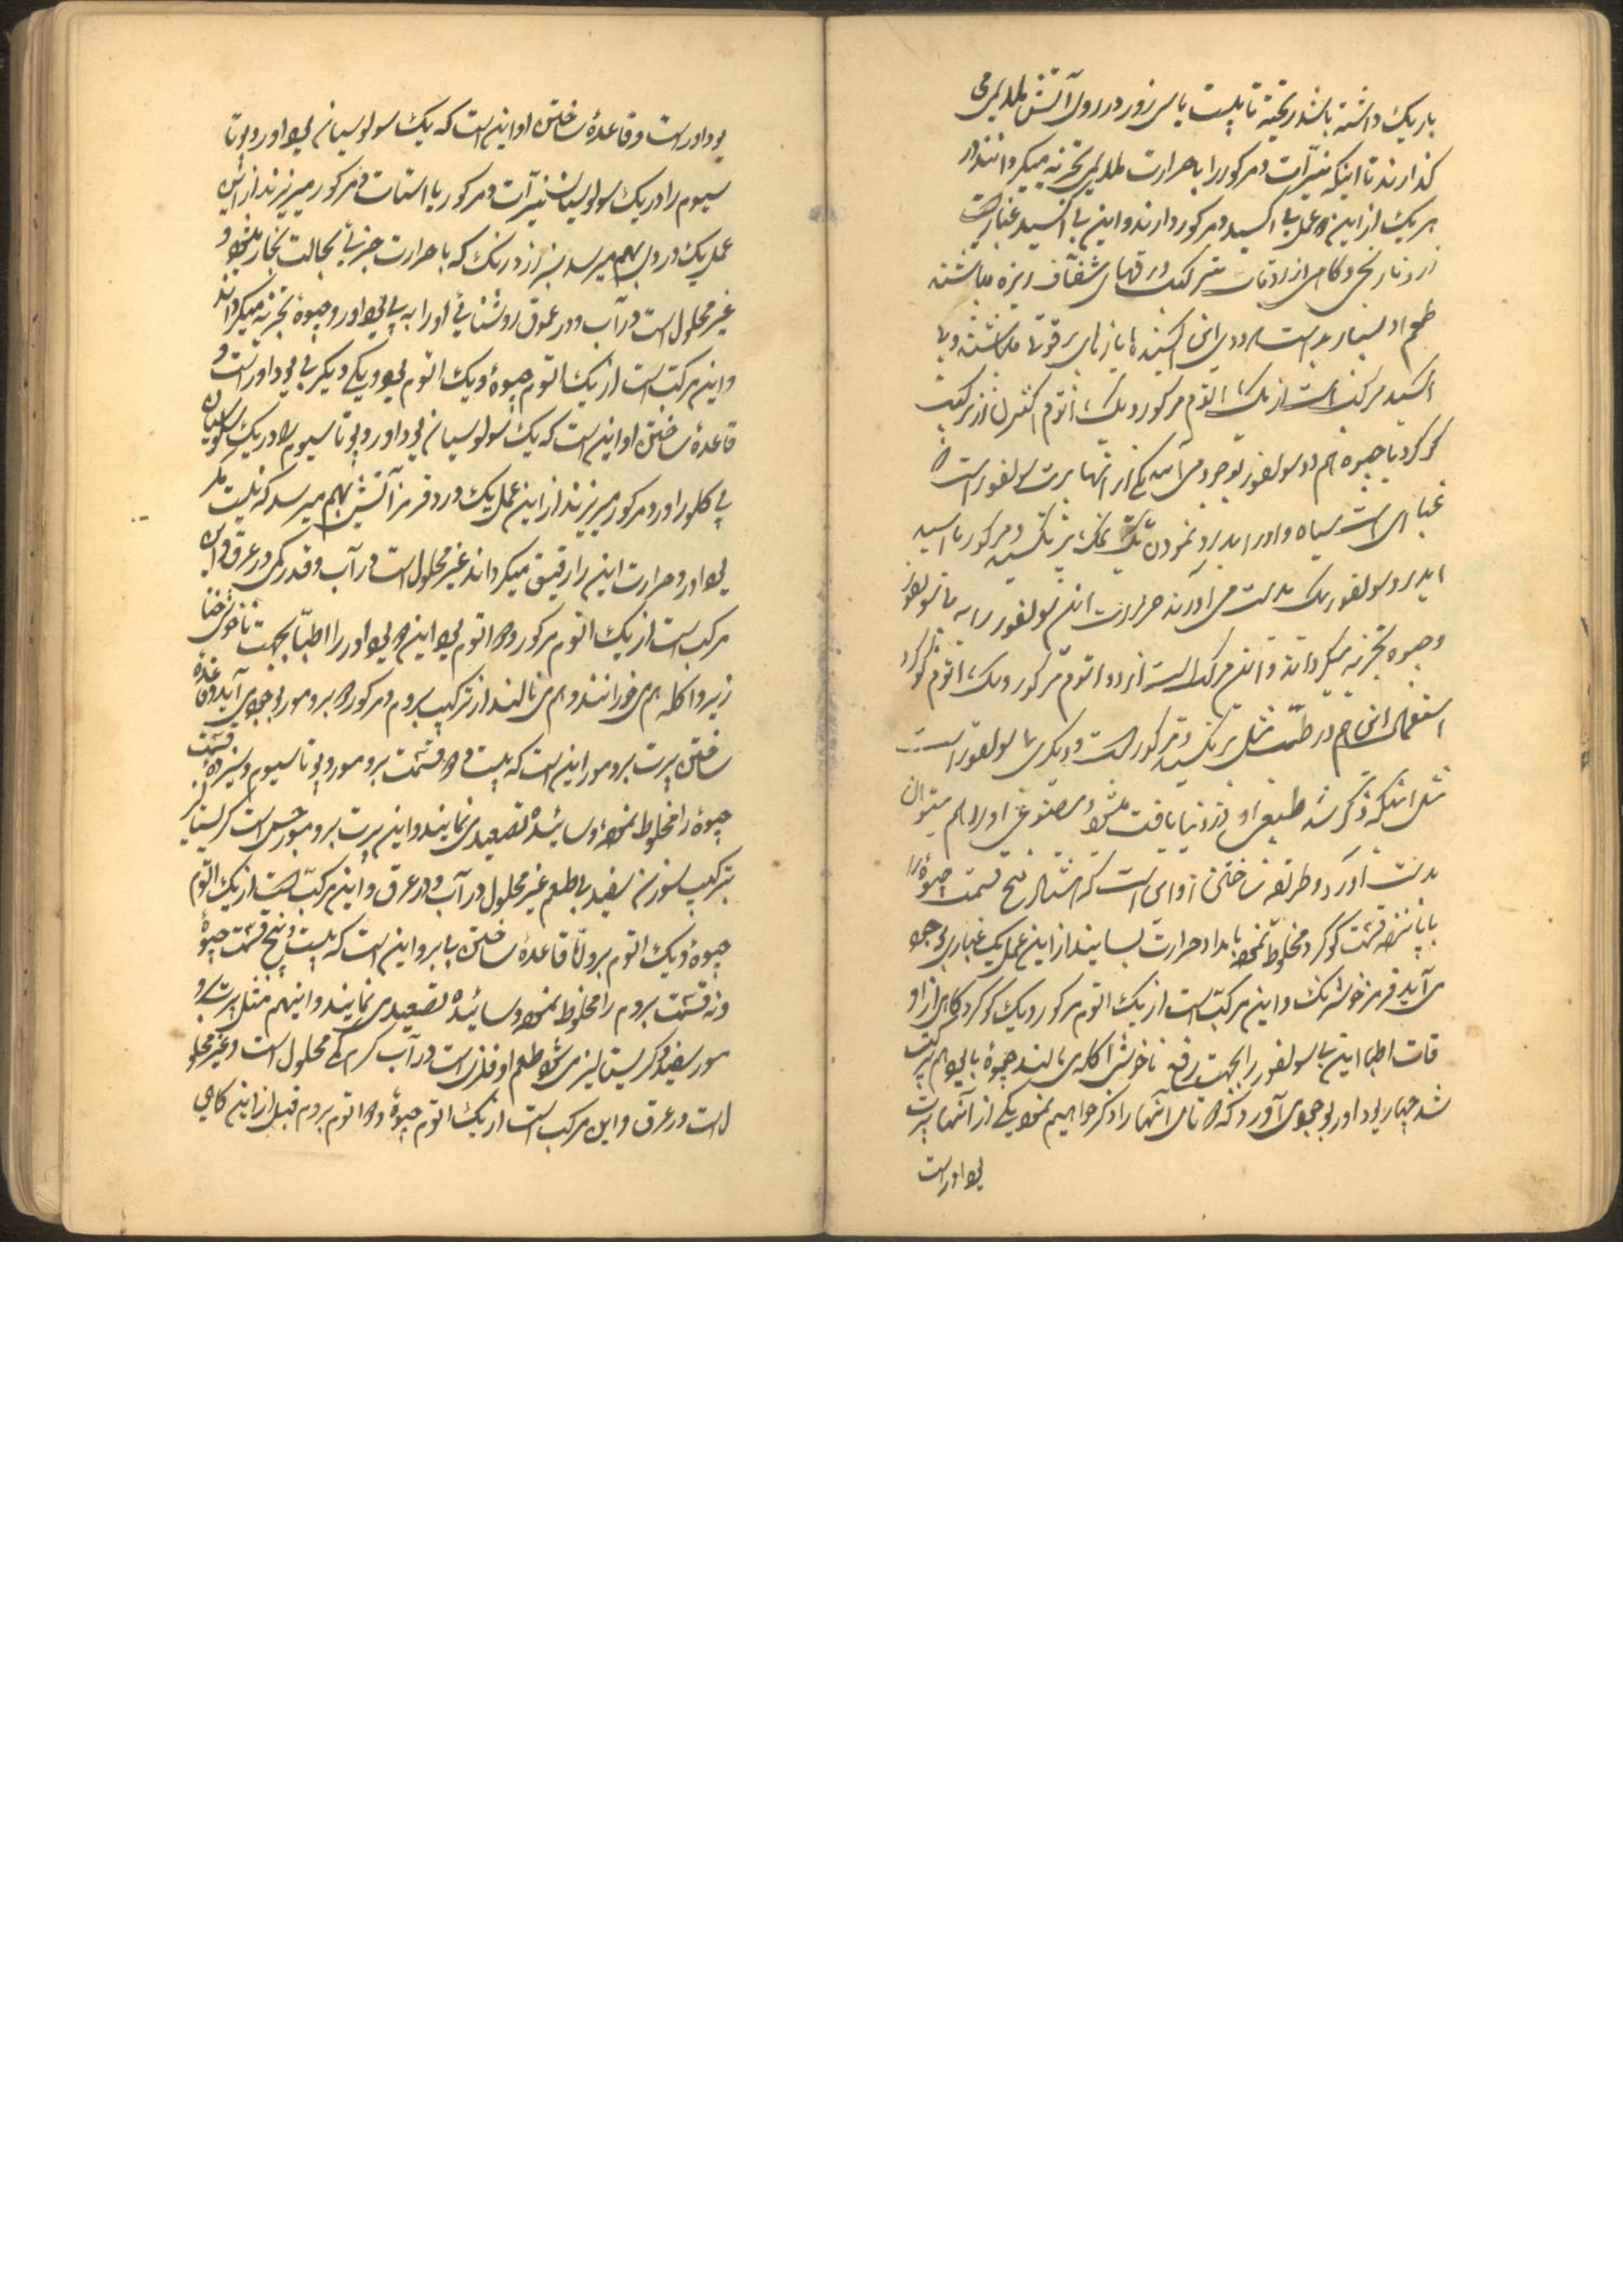 باریک داشته باشد ریخته تا بیست یا سی زور در روی آتش ملایم می
گذارند تا اینکه نیترات دمرکور را با حرارت ملایم تجزیه میگردانند در
هر یک از این دو عمل بی اکسید دمرکور دارند و این بی اکسید غباریست
زرد نارنجی و گاهی از اوقات ورقهای شفاف ریزه میباشند
طعم او بسیار بد است
اکسید مرکب است از یک اتوم مرکور و یک اتوم اکسژن از ترکیب
گوگرد با جیوه هم دو سولفور بوجود می آید یکی از آنها پرت سولفور است
غباری است سیاه و او را نمودن یک نمک دمرکور با اسید
ایدرو سولفوریک بدست می آورند حرارت این سولفور را به بی سولفور
و جیوه تجزیه میگرداند و این مرکب است از دو اتوم مرکور و یک اتوم گوگرد
استعمال این هم در طب مثل دمرکور است و دیگری بی سولفور است
مثل اینکه ذکر شد طبیعی او در دنیا یافت میشود مصنوعی او را هم میتوان
بدست آورد و طریقه ساختن او این است که هشتاد پنج قسمت جیوه را
با پانزده قسمت گوگرد مخلوط نموده بامداد حرارت بسایند از این عمل یک غباری بوجود
می آید قرمز خوشرنگ و این مرکب است از یک اتوم مرکور و یک گوگرد گاهی از او
قات اطبا این بی سولفور را بجهت رفع ناخوشی اکله می مالند جیوه با یود هم مرکب
شد چهار یوداور بوجود می آورد که دو تای آنها را ذکر خواهیم نمود یکی از آنها پرت
یوداور است
یوداور است و قاعده ساختن او این است که یک سولوسیان یوداور دپوتا
سیوم را در یک سولوسیان نیترات دمرکور یا استات دمرکور میریزند از این
عمل یک دردی بهم میرسد سبز زرد رنگ که با حرارت جزئی بحالت بخار میشود و
غیر محلول است در آب و در عرق روشنائی او را به بی یوداور و جیوه تجزیه میگرداند
و این مرکب است از یک اتوم جیوه و یک اتوم یود و یکی دیگر بی یوداور است و
قاعده ساختن او این است که یک سولوسیان یوداور دپوتاسیوم را در یک سولوسیان
بی کلوراور دمرکور میریزند از این عمل یک درد قرمز آتشی بهم میرسد که نیست مگر
یوداور و حرارت این را رقیق میگرداند غیر محلول است در آب و قدر کمی در عرق و این
مرکب است از یک اتوم مرکور و دو اتوم یود این دو یوداور را اطبا بجهت ناخوشی خنا
زیر و اکله هم می خورانند و هم می مالند از ترکیب بروم و مرکور دو برومور بوجود می آید و قاعده
ساختن پرت برومور این است که بیست و دو قسمت برومور دپوتاسیوم و سیزده قسمت
جیوه را مخلوط نموده و سائیده تصعید می نمایند و این پرت برومور جسمی است کریستالیز
بترکیب سوزن سفید بی طعم غیر محلول در آب و در عرق و این مرکب است از یک اتوم
جیوه و یک اتوم بروم اما قاعده ساختن بی برو این است که بیست و پنج قسمت جیوه
و نه قسمت بروم را مخلوط نموده و سائیده تصعید می نمایند و اینهم مثل پرت برو
مور سفید و کریستالیز می شود طعم او فلزی است در آب گرم کمی محلول است و غیر محلو
ل است در عرق و این مرکب است از یک اتوم جیوه و دو اتوم بروم قبل از این گاهی